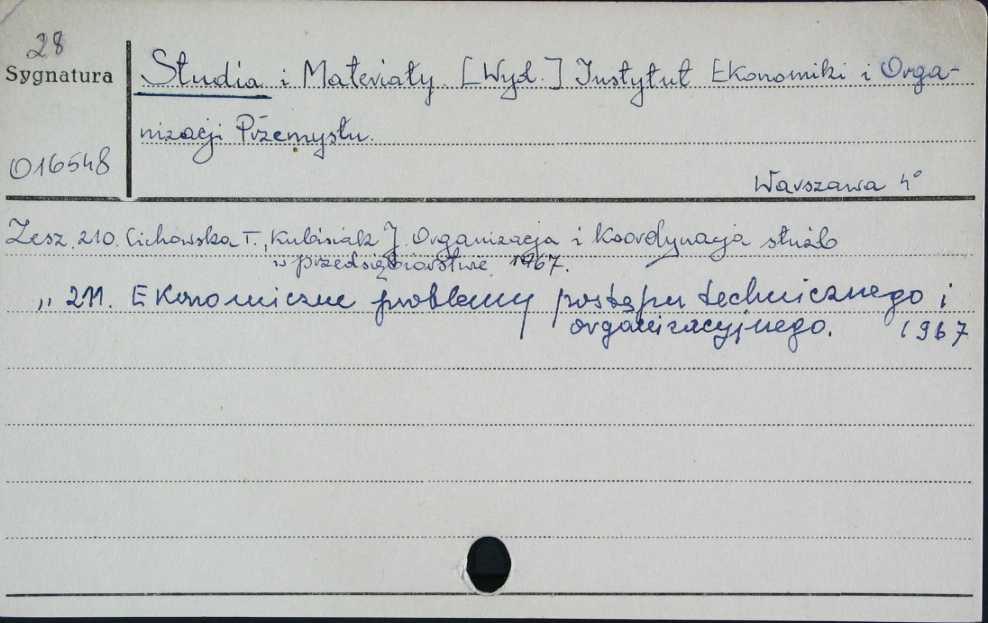 28
Sygnatura
Studia i Materiały. [Wyd.] Instytut Ekonomiki i Orga-
nizacji Przemysłu.
016548
Warszawa 4°
Zesz. 210. Cichowska T., Kubisiak J. Organizacja i koordynacja służb
w przedsiębiorstwie 1967.
„ 211. Ekonomiczne problemy postępu technicznego i
organizacyjnego. 1967